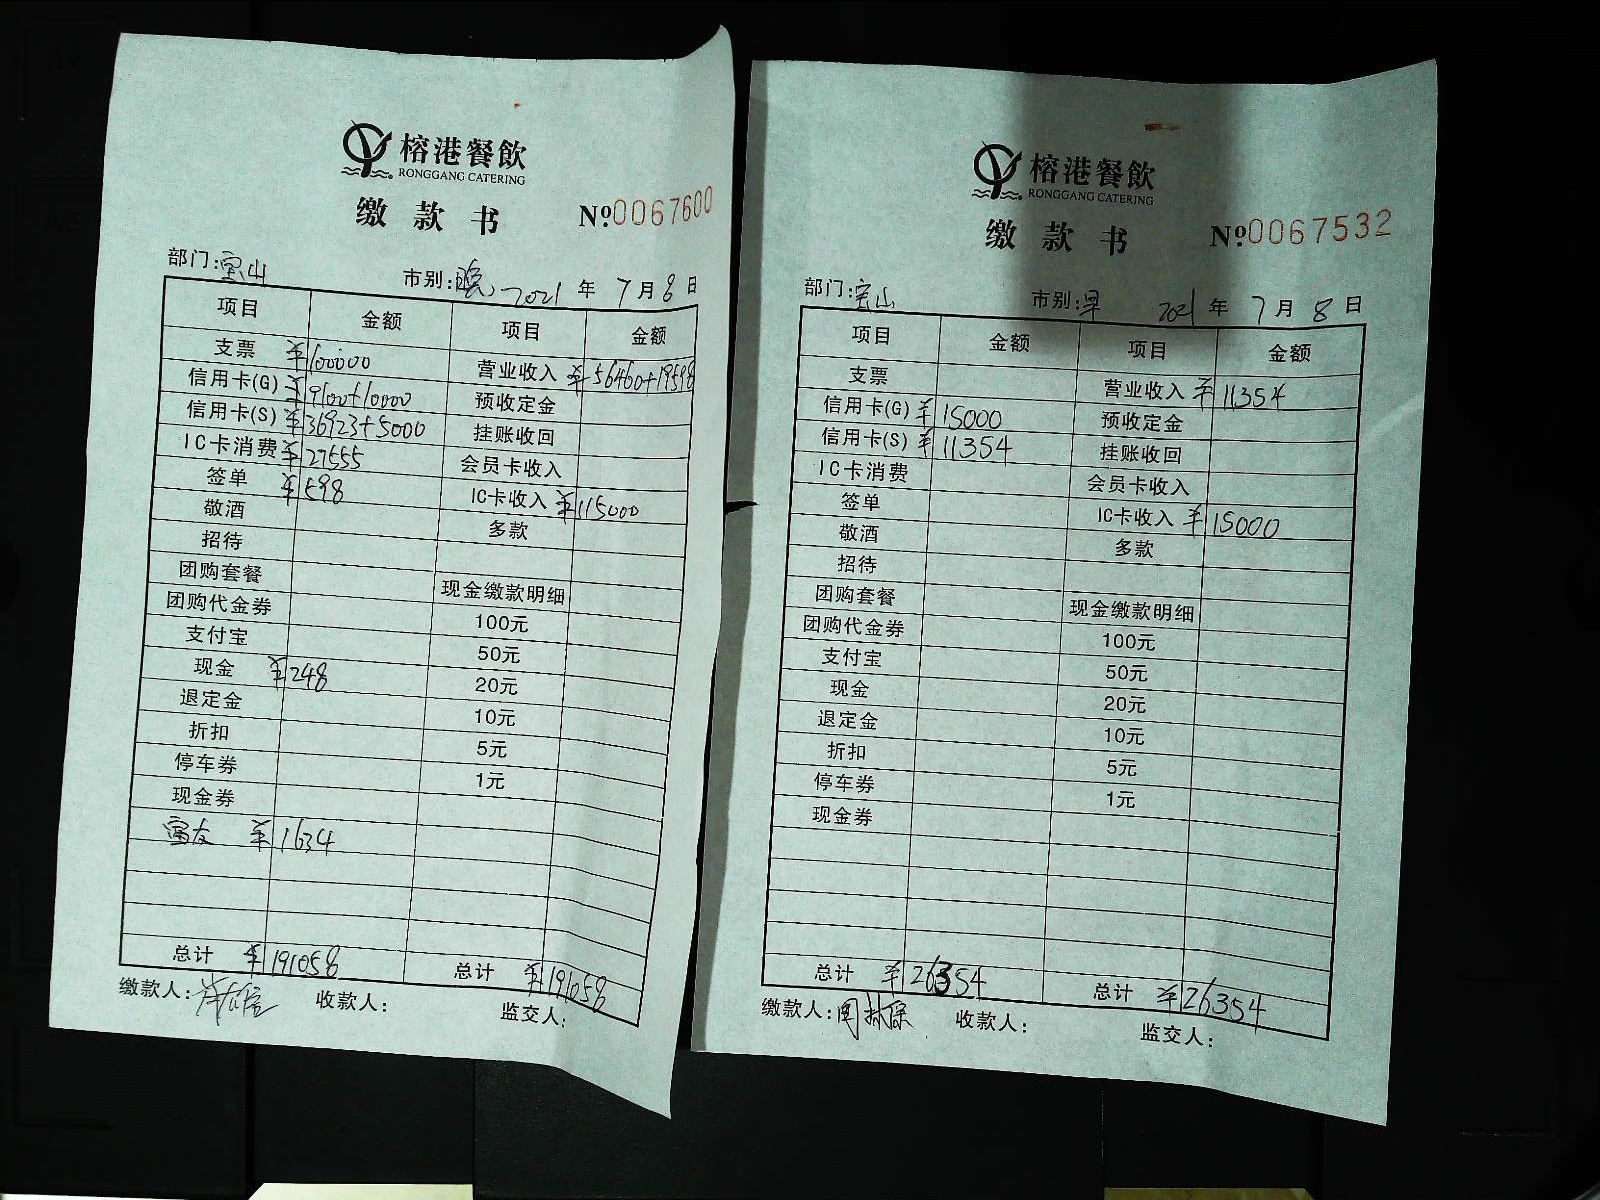 榕港餐飲
RONGGANG CATERING
缴款书 №.0067600
部门:宝山 市别:晚 2021年7月8日
项目 金额 项目 金额
支票 ¥100000 营业收入 ¥56460+19598
信用卡(G) ¥9100+10000 预收定金
信用卡(S) ¥36923+5000 挂账收回
IC卡消费 ¥27555 会员卡收入
签单 ¥598 IC卡收入 ¥115000
敬酒 多款
招待
团购套餐 现金缴款明细
团购代金券 100元
支付宝 50元
现金 ¥248 20元
退定金 10元
折扣 5元
停车券 1元
现金券
¥1634
总计 ¥191058 总计 ¥191058
缴款人: 收款人: 监交人:
榕港餐飲
RONGGANG CATERING
缴款书 №.0067532
部门:宝山 市别:早 2021年7月8日
项目 金额 项目 金额
支票 营业收入 ¥11354
信用卡(G) ¥15000 预收定金
信用卡(S) ¥11354 挂账收回
IC卡消费 会员卡收入
签单 IC卡收入 ¥15000
敬酒 多款
招待
团购套餐 现金缴款明细
团购代金券 100元
支付宝 50元
现金 20元
退定金 10元
折扣 5元
停车券 1元
现金券
总计 ¥26354 总计 ¥26354
缴款人: 收款人: 监交人: